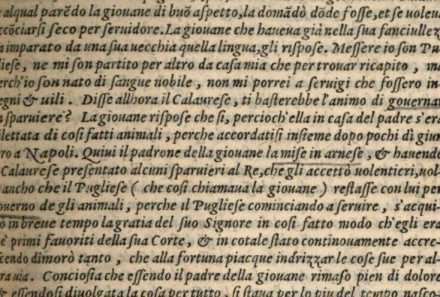 alqual parẽdo la giouane di buõ aspetto, la domãdò dõde fosse, et se uoleua
cõciarsi seco per seruidore. La giouane che haueua già nella sua fanciullez
imparato da una sua uecchia quella lingua, gli rispose. Messere io son Pu
liese, ne mi son partito per altro da casa mia che per trouar ricapito, ma
perch'io son nato di sangue nobile, non mi porrei a seruigi che fossero in
egni & uili. Disse allhora il Calaurese, ti basterebbe l'animo di gouernar
sparuiere? La giouane rispose che si, percioch'ella in casa del padre s'era
lettata di cosi fatti animali, perche accordatisi insieme dopo pochi di giun
ro a Napoli. Quiui il padrone della giouane la mise in arnese, & hauendo
Calaurese presentato alcuni sparuieri al Re, che gli accettò uolentieri, uol
ancho che il Pugliese ( che cosi chiamaua la giouane ) restasse con lui per
ouerno de gli animali, perche il Pugliese cominciando a seruire, s'acqui
in breue tempo la gratia del suo Signore in cosi fatto modo ch'egli era
e' primi fauoriti della sua Corte, & in cotale stato continouamente accre
cendo dimorò tanto, che alla fortuna piacque indrizzar le cose sue per al-
ra uia. Conciosia che essendo il padre della giouane rimaso pien di dolore
& essendosi diuolgata la cosa per tutto, si staua per lo piu del tempo nasco